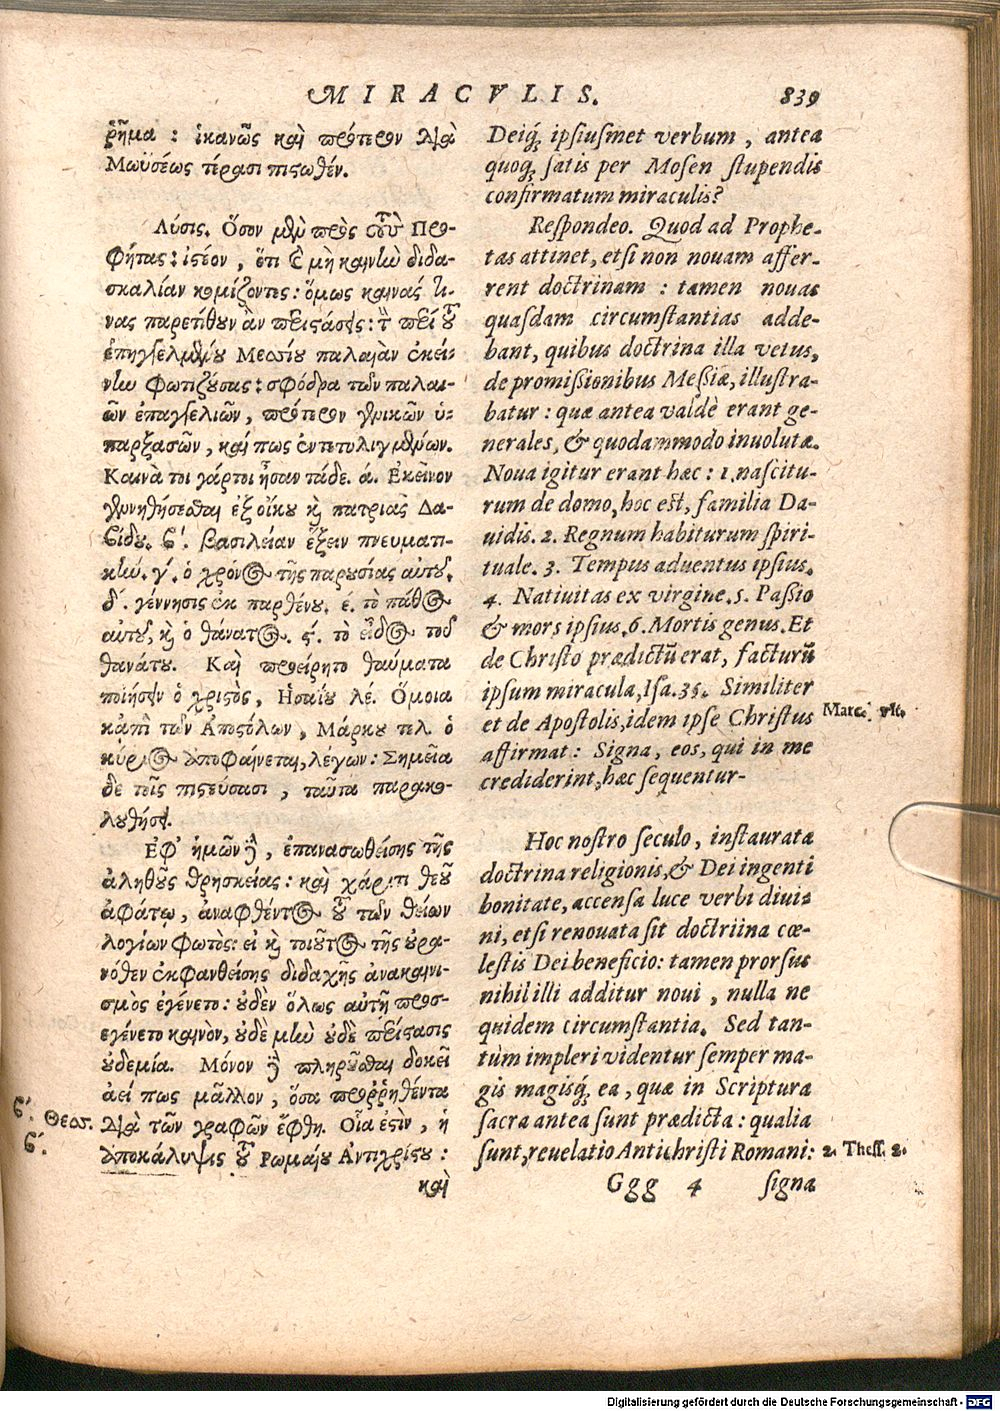 MIRACVLIS. 839
ῥῆμα : ἱκανῶς καὶ πρότερον διὰ
Μωϋσέως τέρασι πιστωθέν.
Λύσις. Ὅσον μὲν πρὸς τοὺς Προ-
φήτας : ἰστέον, ὅτι εἰ μὴ καινὴν διδα-
σκαλίαν κομίζοντες : ὅμως καινάς τι-
νας παρετίθουν ἂν περιστάσεις : τὴν περὶ τοῦ
ἐπηγγελμένου Μεσσίου παλαιὰν ἐκεί-
νην φωτιζούσας : σφόδρα τῶν παλαι-
ῶν ἐπαγγελιῶν, πρότερον γενικῶν ὑ-
παρξασῶν, καί πως ἐντετυλιγμένων.
Καινὰ τοι γάρτοι ἦσαν τάδε. ά. Ἐκεῖνον
γεννηθήσεσθαι ἐξ οἴκου καὶ πατριᾶς Δα-
βίδου. β΄. βασιλείαν ἕξειν πνευματι-
κήν. γ΄. ὁ χρόνος τῆς παρουσίας αὐτοῦ.
δ΄. γέννησις ἐκ παρθένου. έ. τὸ πάθος
αὐτοῦ, καὶ ὁ θάνατος. ς΄. τὸ εἶδος τοῦ
θανάτου. Καὶ προείρητο θαύματα
ποιήσειν ὁ χριστὸς, Ἡσαΐου λέ. Ὅμοια
κἀπὶ τῶν Ἀποστόλων, Μάρκου τελ. ὁ
κύριος ἀποφαίνεται, λέγων : Σημεῖα
δὲ τοῖς πιστεύσασι, ταῦτα παρακο-
λουθήσει.
Ἐφ' ἡμῶν δὲ, ἐπανασωθείσης τῆς
ἀληθοῦς θρησκείας : καὶ χάριτι θεοῦ
ἀφάτῳ, ἀναφθέντος τοῦ τῶν θείων
λογίων φωτός : εἰ καὶ τοιοῦτος τῆς οὐρα-
νόθεν ἐκφανθείσης διδαχῆς ἀνακαινι-
σμὸς ἐγένετο : οὐδὲν ὅλως αὐτῇ προσ-
εγένετο καινὸν, οὐδὲ μὴν οὐδὲ περίστασις
οὐδεμία. Μόνον δὲ πληροῦσθαι δοκεῖ
ἀεί πως μᾶλλον, ὅσα προῤῥηθέντα
διὰ τῶν γραφῶν ἔφθη. Οἷα ἐστὶν, ἡ
ἀποκάλυψις τοῦ Ρωμαίου Ἀντιχρίστου :
καὶ
β΄. Θεσσ.
β΄.
Deiq́; ipsiusmet verbum, antea
quoq; satis per Mosen stupendis
confirmatum miraculis?
Respondeo. Quod ad Prophe-
tas attinet, etsi non nouam affer-
rent doctrinam : tamen nouas
quasdam circumstantias adde-
bant, quibus doctrina illa vetus,
de promissionibus Messiæ, illustra-
batur : quæ antea valdè erant ge-
nerales, & quodammodo inuolutæ.
Noua igitur erant hæc : 1. nascitu-
rum de domo, hoc est, familia Da-
uidis. 2. Regnum habiturum spiri-
tuale. 3. Tempus aduentus ipsius.
4. Natiuitas ex virgine. 5. Passio
& mors ipsius. 6. Mortis genus. Et
de Christo prædictũ erat, facturũ
ipsum miracula, Isa. 35. Similiter
et de Apostolis, idem ipse Christus
affirmat : Signa, eos, qui in me
crediderint, hæc sequentur-
Marc. vlt.
Hoc nostro seculo, instaurata
doctrina religionis, & Dei ingenti
bonitate, accensa luce verbi diui-
ni, etsi renouata sit doctriina cœ-
lestis Dei beneficio: tamen prorsus
nihil illi additur noui, nulla ne
quidem circumstantia. Sed tan-
tùm impleri videntur semper ma-
gis magisq́; ea, quæ in Scriptura
sacra antea sunt prædicta : qualia
sunt, reuelatio Antichristi Romani:
2. Thess. 2.
Ggg 4 signa
Digitalisierung gefördert durch die Deutsche Forschungsgemeinschaft - DFG